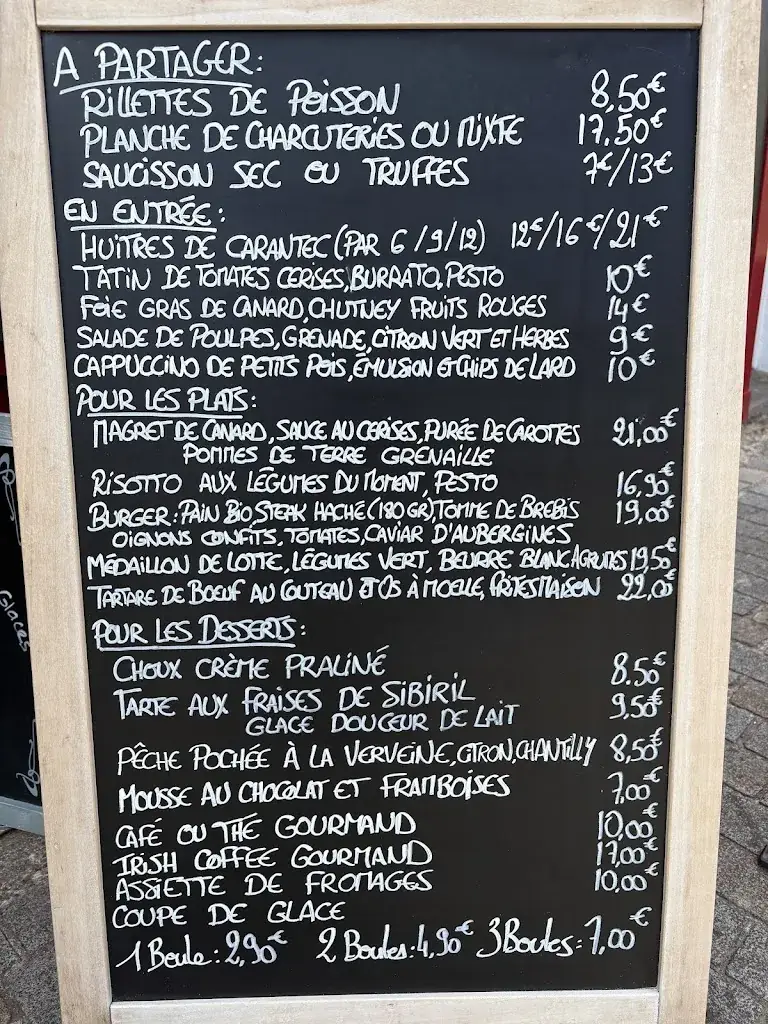 A PARTAGER:
RILLETTES DE POISSON 8,50€
PLANCHE DE CHARCUTERIES OU MIXTE 17,50€
SAUCISSON SEC OU TRUFFES 7€/13€
EN ENTRÉE:
HUITRES DE CARANTEC (PAR 6/9/12) 12€/16€/21€
TATIN DE TOMATES CERISES, BURRATA, PESTO 10€
FOIE GRAS DE CANARD, CHUTNEY FRUITS ROUGES 14€
SALADE DE POULPES, GRENADE, CITRON VERT ET HERBES 9€
CAPPUCCINO DE PETITS POIS, ÉMULSION ET CHIPS DE LARD 10€
POUR LES PLATS:
MAGRET DE CANARD, SAUCE AU CERISES, PURÉE DE CAROTTES 21,00€
POMMES DE TERRE GRENAILLE
RISOTTO AUX LÉGUMES DU MOMENT, PESTO 16,90€
BURGER: PAIN BIO, STEAK HACHÉ (180 GR), TOMME DE BREBIS 19,00€
OIGNONS CONFITS, TOMATES, CAVIAR D'AUBERGINES
MÉDAILLON DE LOTTE, LÉGUMES VERT, BEURRE BLANC AGRUMES 19,50€
TARTARE DE BOEUF AU COUTEAU ET OS À MOELLE, FRITES MAISON 22,00€
POUR LES DESSERTS:
CHOUX CRÈME PRALINÉ 8.50€
TARTE AUX FRAISES DE SIBIRIL 9,50€
GLACE DOUCEUR DE LAIT
PÊCHE POCHÉE À LA VERVEINE, CITRON, CHANTILLY 8,50€
MOUSSE AU CHOCOLAT ET FRAMBOISES 7,00€
CAFÉ OU THÉ GOURMAND 10,00€
IRISH COFFEE GOURMAND 17,00€
ASSIETTE DE FROMAGES 10,00€
COUPE DE GLACE
1 Boule: 2,90€ 2 Boules: 4,90€ 3 Boules: 7,00€
Glaces